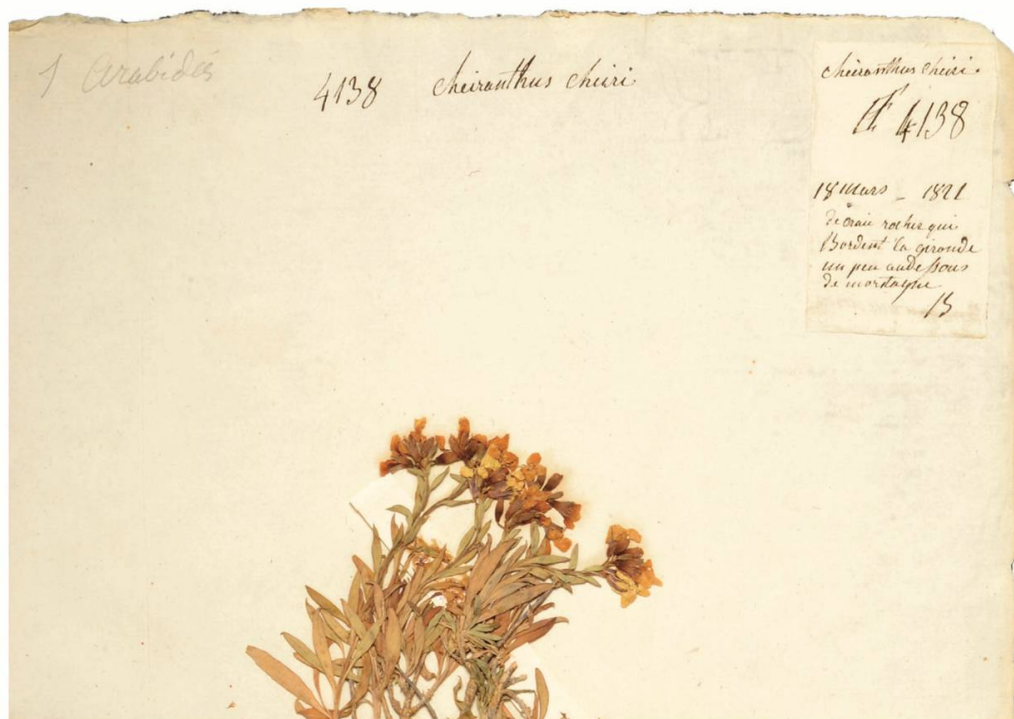 1 arabidés
4138 cheiranthus cheiri
cheiranthus cheiri.
4138
18 Mars _ 1821
de craie rocher qui
Bordent la gironde
un peu audessous
de mortagne
B